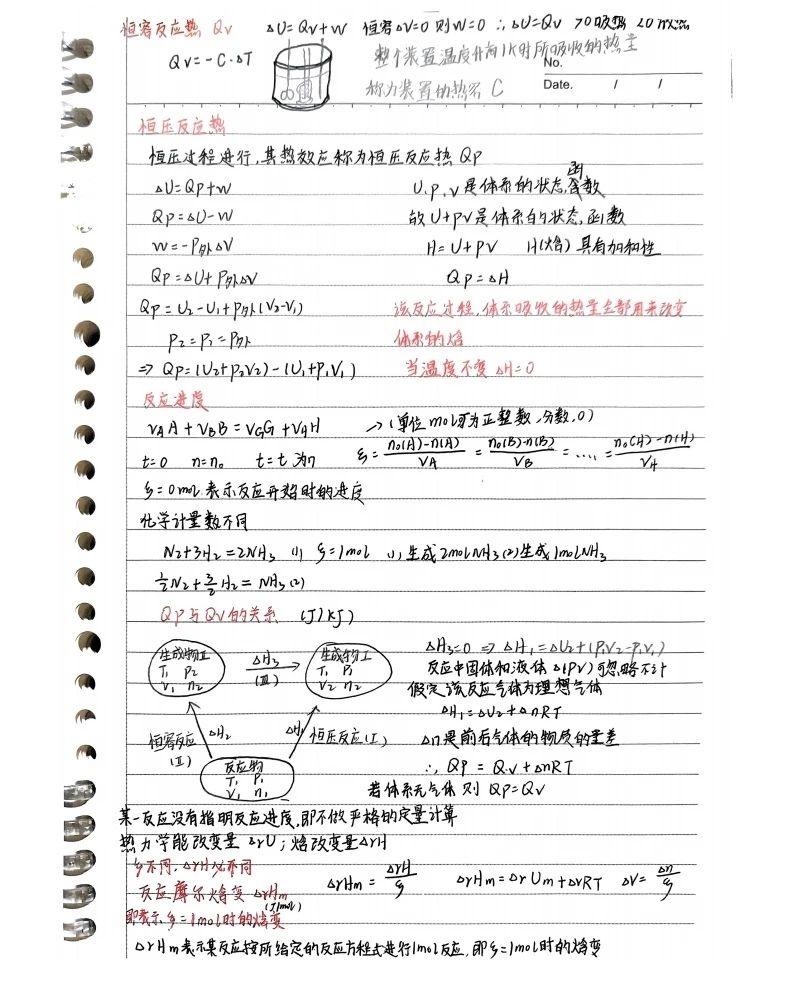 恒容反应热 Qv  ΔU=Qv+W  恒容ΔV=0 则W=0 ∴ΔU=Qv >0吸热 <0放热
Qv=-C·ΔT  整个装置温度升高1K时所吸收的热量
No.
称为装置的热容 C
Date.  /  /
恒压反应热
恒压过程进行,其热效应称为恒压反应热 Qp
ΔU=Qp+W  U.P.V是体系的状态函数
Qp=ΔU-W  故U+PV是体系的状态函数
W=-P外ΔV  H=U+PV  H(焓)具有加和性
Qp=ΔU+P外ΔV  Qp=ΔH
Qp=U2-U1+P外(V2-V1)  该反应过程,体系吸收的热量全部用来改变
P2=P1=P外  体系的焓
⇒ Qp=(U2+P2V2)-(U1+P1V1)  当温度不变 ΔH=0
反应进度
νAA+νBB=νGG+νHH  →(单位mol可为正整数,分数,0)
t=0  n=n0  t=t 为n  ξ=n0(A)-n(A)/νA = n0(B)-n(B)/νB =....= n0(H)-n(H)/νH
ξ=0mol 表示反应开始时的进度
化学计量数不同
N2+3H2=2NH3 (1) ξ=1mol (1)生成2molNH3 (2)生成1molNH3
½N2+3/2H2=NH3(2)
Qp与Qv的关系 (J)(KJ)
生成物II T1 P2 V1 n2  ΔH3 (III)  生成物I T1 P1 V2 n2  ΔH3=0 ⇒ ΔH1=ΔU2+(P1V2-P1V1)
反应中固体和液体Δ(PV)可忽略不计
假定该反应气体为理想气体
ΔH1=ΔU2+ΔnRT
恒容反应(II)  ΔH2  ΔH1  恒压反应(I)  Δn是前后气体的物质的量差
反应物 T1 P1 V1 n1  ∴ QP=Qv+ΔnRT
若体系无气体则 QP=Qv
某一反应没有指明反应进度,即不做严格的定量计算
热力学能改变量 ΔrU;焓改变量ΔrH
ξ不同,ΔrH必不同
反应摩尔焓变 ΔrHm (J/mol)  ΔrHm=ΔrH/ξ  ΔrHm=ΔrUm+ΔνRT  Δν=Δn/ξ
即表示ξ=1mol时的焓变
ΔrHm表示某反应按所给定的反应方程式进行1mol反应,即ξ=1mol时的焓变